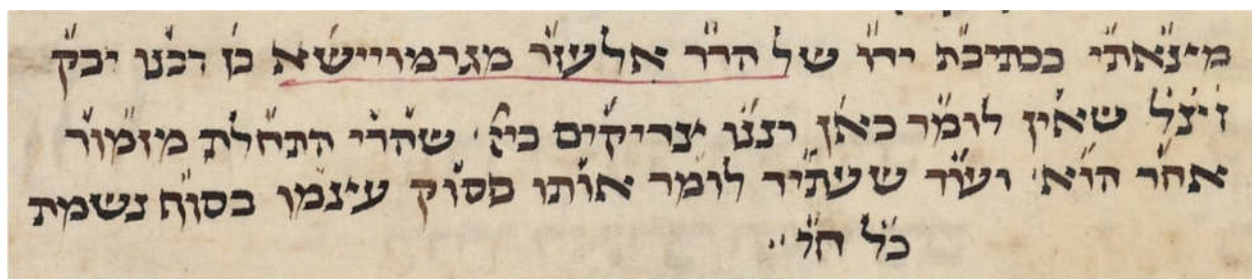 מיצאתי בכתיבת ידו של הרר אלעזר מגרמוייש׳א בן רבנו יבק
זיצ׳ל שאין לומר כאן רננו צדיקים ביי׳. שהרי התחלת מזמור
אחר הוא׳ ועוד שעתיד לומר אותו פסוק עצמו בסוף נשמת
כל חי׳׃